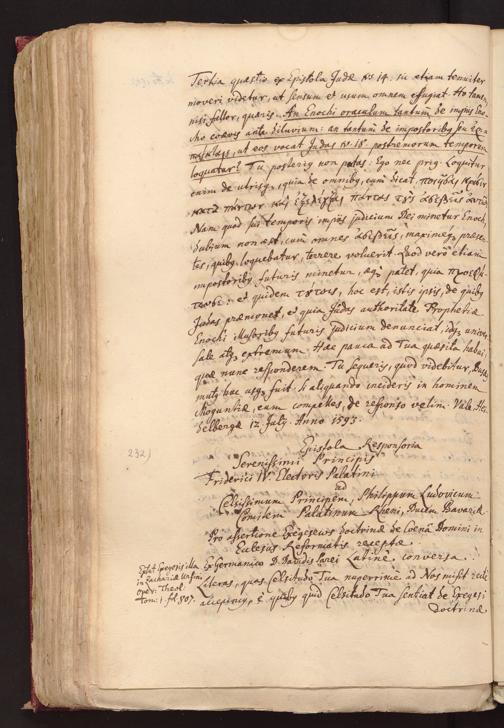 Tertia quæstio ex Epistola Judæ vs. 14. sic etiam tenuiter
moveri videtur, ut sensum et usum omnem effugiat. Ho tans,
nisi fallor, quæris. An Enochi oraculum tantum de impiis Eno-
cho coævis ante diluvium: an tantum de impostoribus seu
ut eos vocat Judas vs. 18. postremorum temporum
loquatur? Tu posterius non putas: Ego nec prius. Loquitur
enim de utrisque, quia de omnibus, cum dicat, ποιῆσαι κρίσιν
κατὰ πάντων καὶ ἐξελέγξαι πάντας τοὺς ἀσεβεῖς αὐτῶν
Nam quod sui temporis impiis judicium Dei minetur Enoch,
dubium non est, cum omnes ἀσεβεῖς, maximeq, præsen-
tes, quibq loquebatur, terrere voluerit. Quod verò etiam
impostoribq futuris minetur, æq patet, quia προεφή-
τευσε: et quidem τούτοις, hoc est, istis ipsis, de quibq
Judas præmonet, et quia Judas authoritate Prophetiæ
Enochi illusoribq futuris judicium denunciat, idq univer-
sale atq extremum. Hæc pauca ad Tua quæsita habui,
quæ nunc responderem. Tu sequeris, quod videbitur.
mutq hac usq fuit. Si aliquando incideris in hominem
eum compelles, de responso velim. Vale. Hei-
delbergæ 12. July. Anno 1593.
232)
Epistola Responsoria
Serenissimi Principis
Friderici IV Electoris Palatini
ad
Celsissimum Principem, Philippum Ludovicum
Comitem Palatinum Rheni, Ducem Bavariæ
Pro assertione Exegeseωs doctrinæ de Cœnâ Domini in
Ecclesiis Reformatis receptæ.
Ex Germanico D. Davidis Parei Latinè conversa.
Extat Exegesis illa
in Zachariæ Ursini
Oper. Theol.
Tom. 1. fol. 807.
Literas, quas Celsitudo Tua nuperrimè ad Nos misit rectè
accepimq, è quibq quid Celsitudo Tua sentiat de Exegesi
Doctrinæ